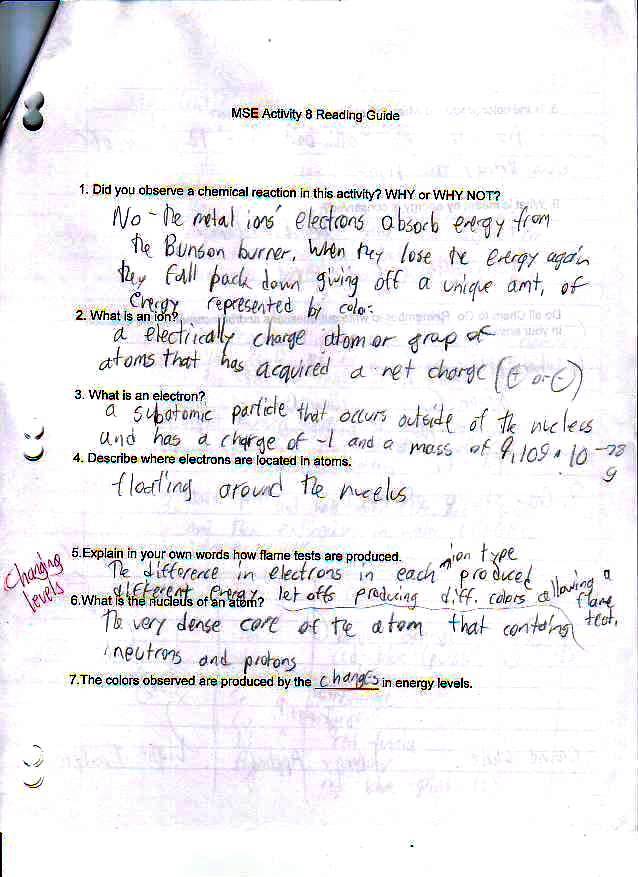 MSE Activity 8 Reading Guide
1. Did you observe a chemical reaction in this activity? WHY or WHY NOT?
No - the metal ions' electrons absorb energy from
the Bunson burner, when they lose the energy again
they fall back down giving off a unique amt, of
energy represented by color
2. What is an ion?
a electrically charge atom or group of
atoms that has acquired a net charge (+ or -)
3. What is an electron?
a subatomic particle that occurs outside of the nucleus
and has a charge of -1 and a mass of 9,109 • 10⁻²⁸
g
4. Describe where electrons are located in atoms.
floating around the nucelus
5.Explain in your own words how flame tests are produced.
ion type
The difference in electrons in each produced
different energy let offs producing diff. colors allowing a
flame
test.
Changing
levels
6.What is the nucleus of an atom?
the very dense core of the atom that contains
neutrons and protons
7.The colors observed are produced by the changes in energy levels.